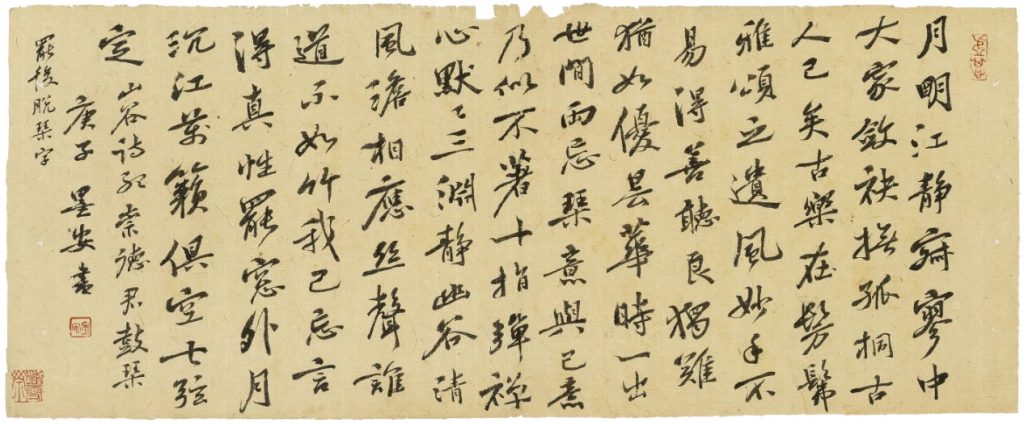 月明江靜寂寥中
大家斂袂撫孤桐古
人已矣古樂在髣髴
雅頌之遺風妙手不
易得善聽良獨難
猶如優曇華時一出
世間兩忘琴意與己意
乃似不著十指彈禪
心默々三淵靜幽谷清
風澹相應絲聲誰
道不如竹我已忘言
得真性罷窓外月
沉江萬籟俱空七弦
定 山谷詩聽崇德君鼓琴
庚子 墨安書
罷後脫琴字